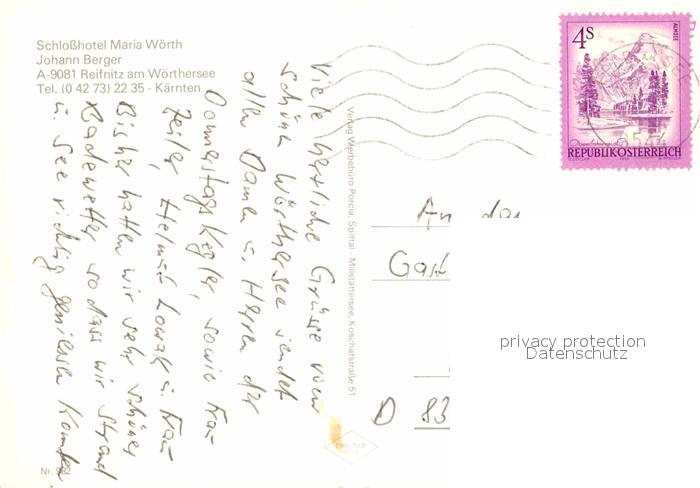 Schloßhotel Maria Wörth
Johann Berger
A-9081 Reifnitz am Wörthersee
Tel. (0 42 73) 22 35 - Kärnten
Viele herzliche Grüsse vom
schönen Wörthersee sendet
allen Damen u. Herren der
Donnerstagskegler, sowie Frau
Zeiler, Helmut u. Frau
Bisher hatten wir sehr schönes
Badewetter so dass wir Strand
u. See richtig geniessen konnten
Nr. 982
Verlag Werbebüro Porcia, Spittal - Millstättersee, Koschatstraße 51
4s
ALMSEE
REPUBLIK ÖSTERREICH
An das
Gast
D 83
privacy protection
Datenschutz